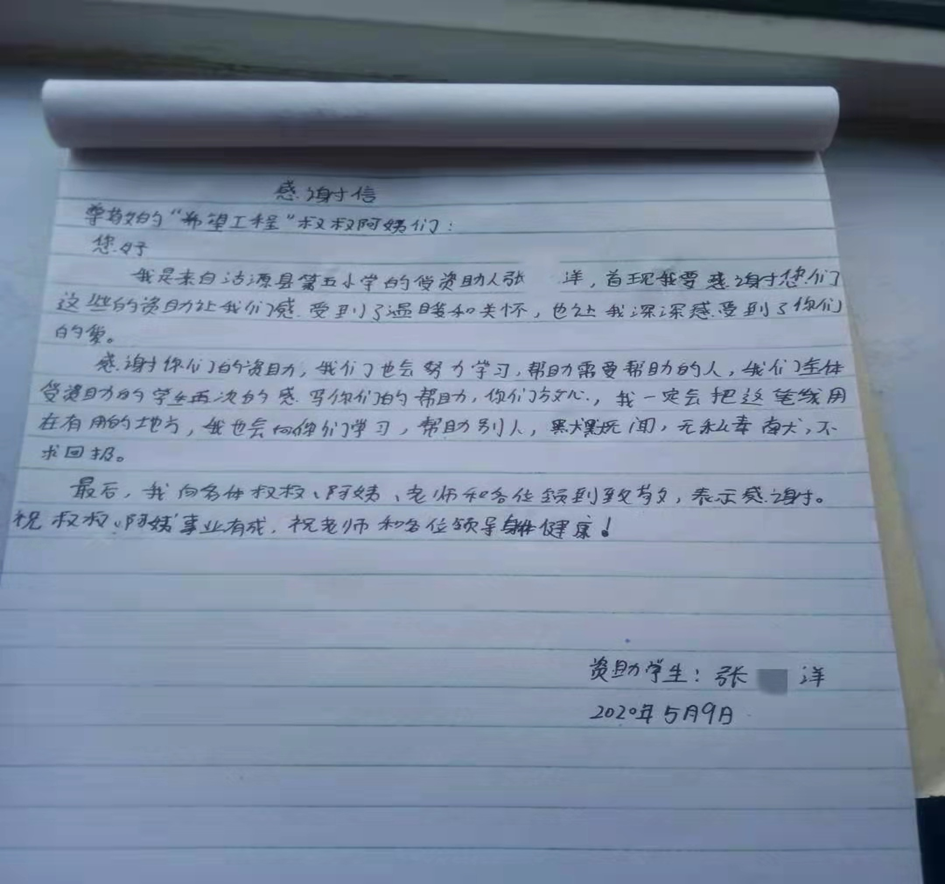 感谢信
尊敬的“希望工程”叔叔阿姨们：
您好
我是来自沽源县第五小学的受资助人张 洋，首现我要感谢您们
这些的资助让我们感受到了温暖和关怀，也让我深深感受到了你们
的爱。
感谢你们的资助，我们也会努力学习，帮助需要帮助的人，我们全体
受资助的学生再次的感写你们的帮助，你们放心，我一定会把这笔钱用
在有用的地方，我也会向你们学习，帮助别人，默默无闻，无私奉献，不
求回报。
最后，我向各位叔叔、阿姨、老师和各位领到致敬，表示感谢。
祝叔叔、阿姨事业有成，祝老师和各位领导身体健康！
资助学生：张 洋
2020年5月9日